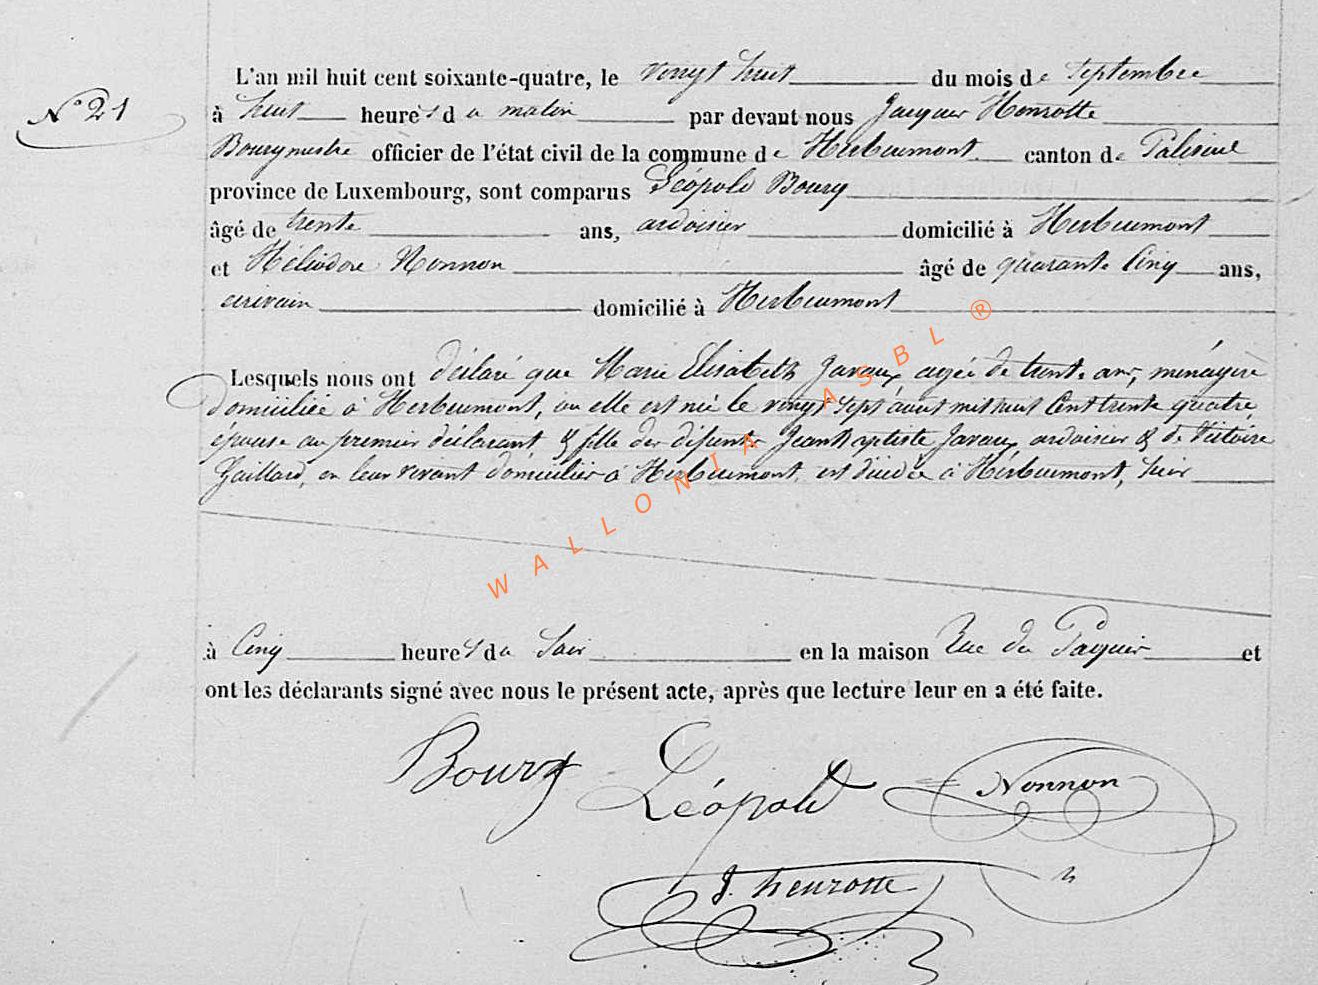 N° 21
L'an mil huit cent soixante-quatre, le vingt huit du mois de septembre
à huit heures du matin par devant nous Jacques Henrotte
Bourgmestre officier de l'état civil de la commune de Herbeumont canton de Paliseul
province de Luxembourg, sont comparus Léopold Boury
âgé de trente ans, ardoisier domicilié à Herbeumont
et Héliodore Nonnon âgé de quarante cinq ans,
écrivain domicilié à Herbeumont
Lesquels nous ont déclaré que Marie Elisabeth Javaux, agée de trente ans, ménagère
domiciliée à Herbeumont, ou elle est née le vingt sept aout mil huit cent trente quatre
épouse au premier déclarant & fille des défunts Jean Baptiste Javaux ardoisier & de Victoire
Gaillard, en leur vivant domiciliés à Herbeumont, est décédée à Herbeumont, hier
à cinq heures du soir en la maison Rue du Paquis et
ont les déclarants signé avec nous le présent acte, après que lecture leur en a été faite.
Boury Léopold Nonnon
J. henrotte
WALLONIA ASBL ®